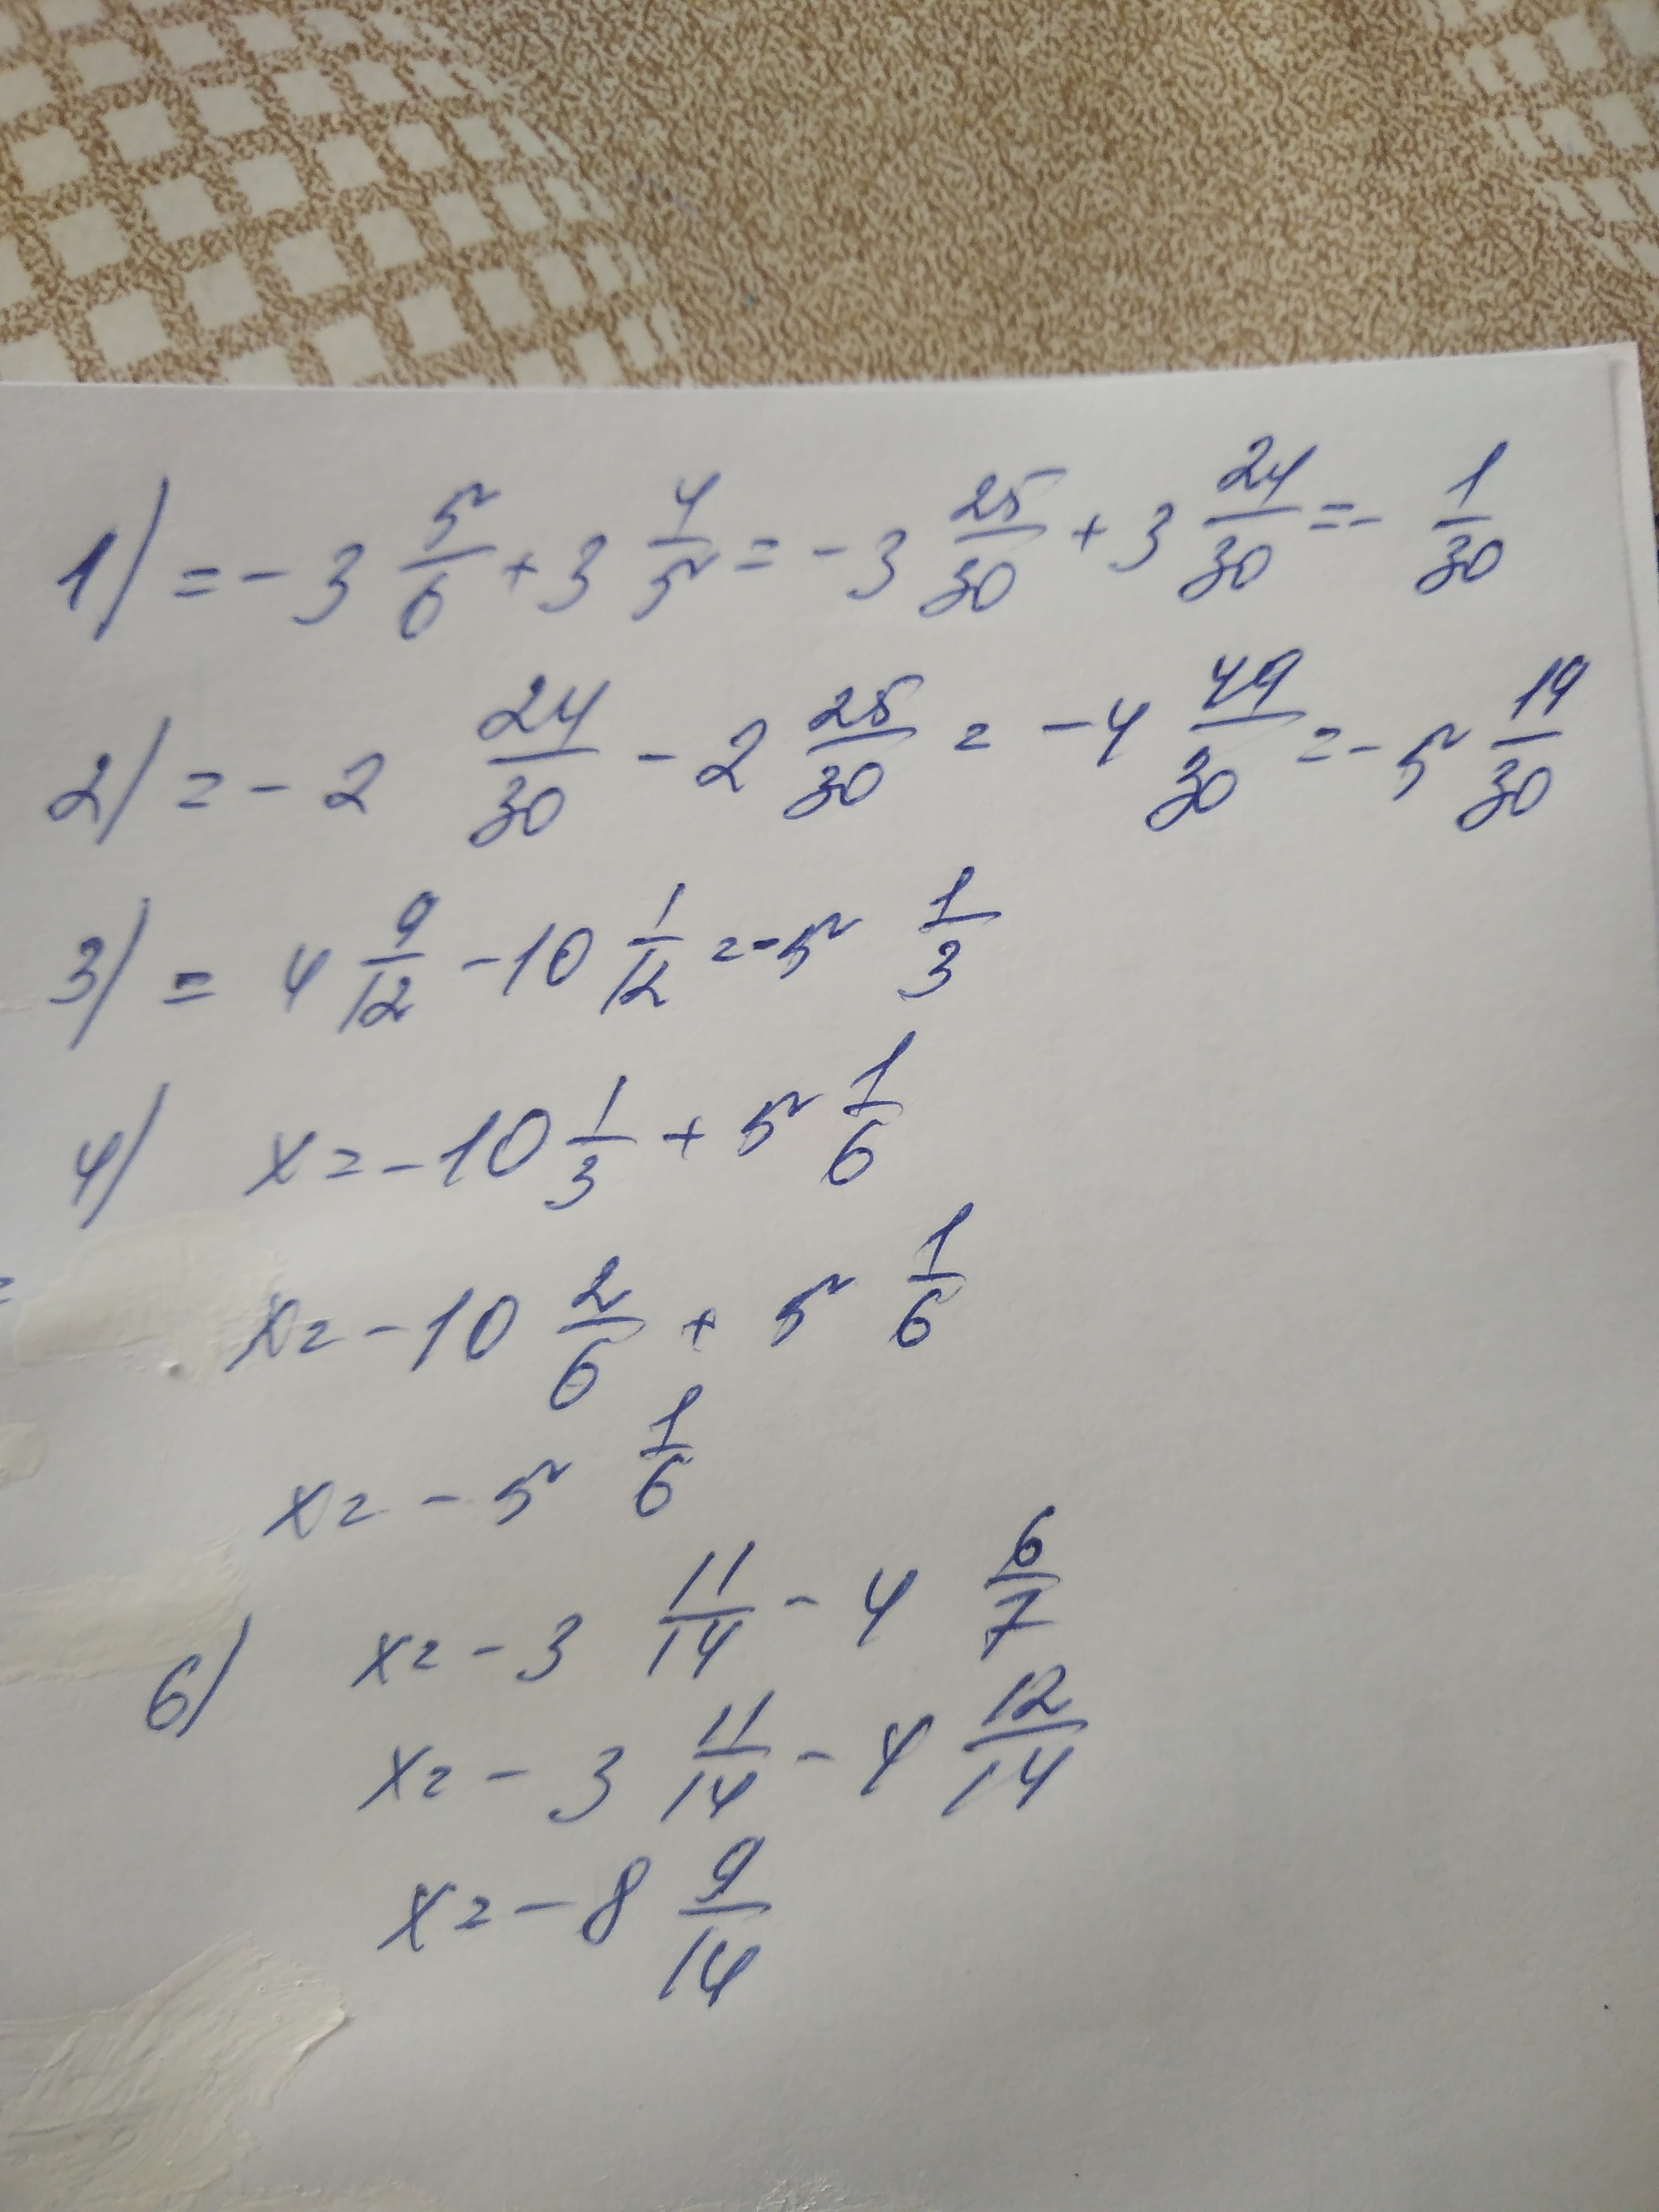 1) = - 3 5/6 + 3 4/5 = - 3 25/30 + 3 24/30 = - 1/30
2) = - 2 24/30 - 2 25/30 = - 4 49/30 = - 5 19/30
3) = 4 9/12 - 10 1/12 = - 5 1/3
4) x = - 10 1/3 + 5 1/6
x = - 10 2/6 + 5 1/6
x = - 5 1/6
6) x = - 3 11/14 - 4 6/7
x = - 3 11/14 - 4 12/14
x = - 8 9/14